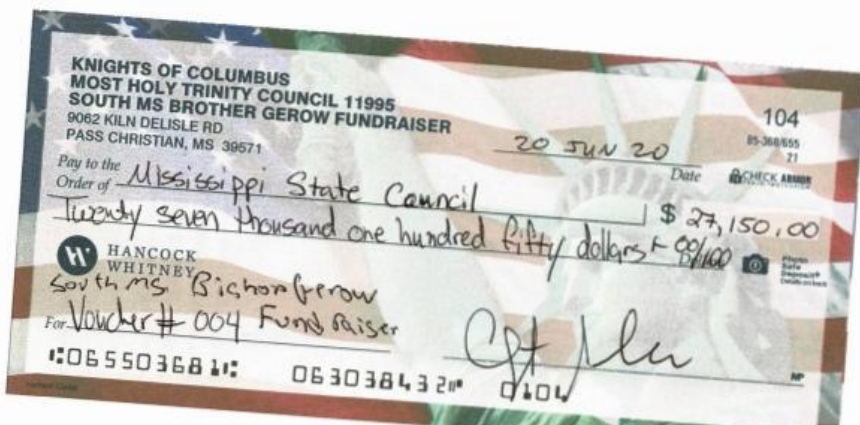 KNIGHTS OF COLUMBUS
MOST HOLY TRINITY COUNCIL 11995
SOUTH MS BROTHER GEROW FUNDRAISER
9062 KILN DELISLE RD
PASS CHRISTIAN, MS 39571
104
85-368/655
21
20 JUN 20
Date
CHECK ARMOR
Pay to the
Order of Mississippi State Council
$ 27,150.00
Twenty seven thousand one hundred fifty dollars + 00/100
Photo
Safe
Deposit®
HANCOCK
WHITNEY
South MS Bishop Gerow
For Voucher # 004 Fund raiser
MP
⑆065503681⑆ 063038432⑈ 0104